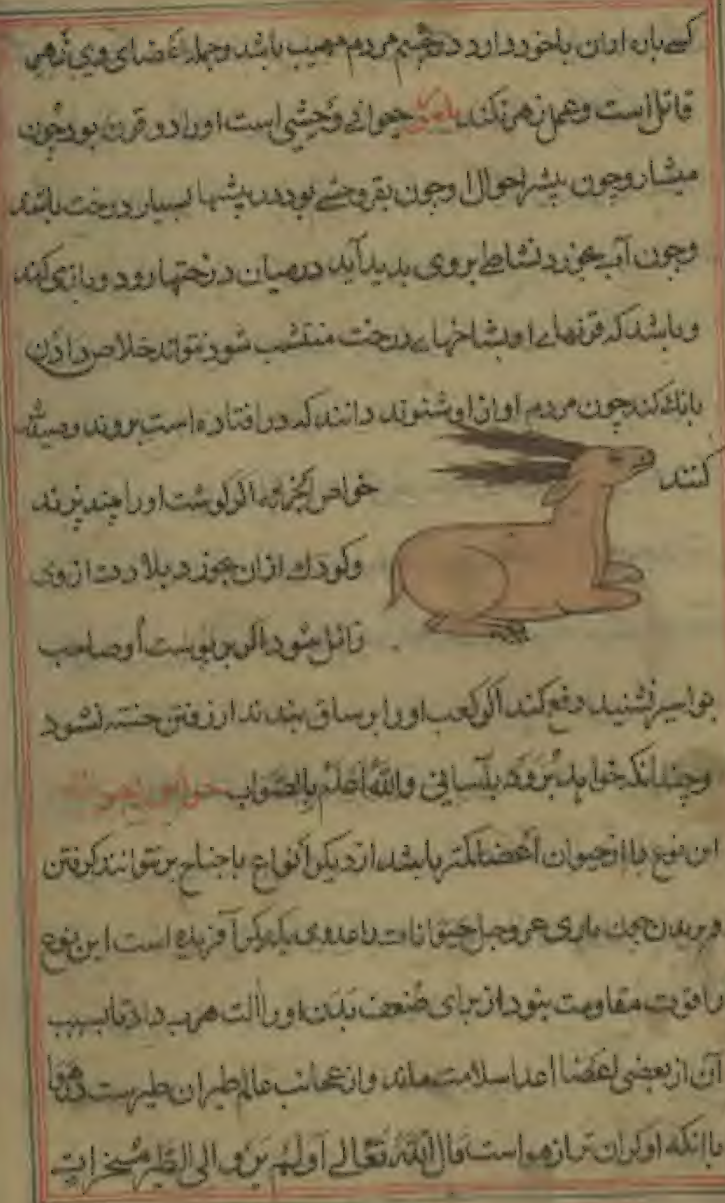 کسی باره ازان با خود دارد در چشم مردم مهیب باشد و جمله اعضای وی زهر
قاتل است و عمل زهر کند حیوانی وحشی است او را دو قرن بود چون
میشار و چون بیشتر احوال او چون بقر وحشی بود در بیشها بسیار درخت باشد
و چون آب خورد نشاط بر وی بدید آید در میان درختها رود و بازی کند
و باشد که قرنهای او بشاخهای درخت منتشب شود نتواند خلاص دادن
بانک کند چون مردم آواز او شنوند دانند که در افتاده است بروند و صیدش
کنند
خواص اجزائه اکر کوشت او را چند بزند
و کودک ازان بخورد بلادت از وی
زائل شود اکر بر بوست او صاحب
بواسیر نشیند دفع کند اکر کعب او را بر ساق بندند از رفتن خسته نشود
و چندانکه خواهد برود بآسانی والله أعلم بالصواب
این نوع را از حیوان اعضا کمتر باشد از دیکر أنواع با جناح بر توانند کرفتن
و بریدن باری عز وجل حیوانات را عدوی یکدیکر آفریده است این نوع
را قوت مقاومت نبود از برای ضعف بدن او را الت هرب داد تا بسبب
آن از بعضی اعدا سلامت ماند و از عجائب عالم طیران طیرست در هوا
با انکه او کران تر از هواست قال الله تعالی أولم یروا الی الطیر مسخرات